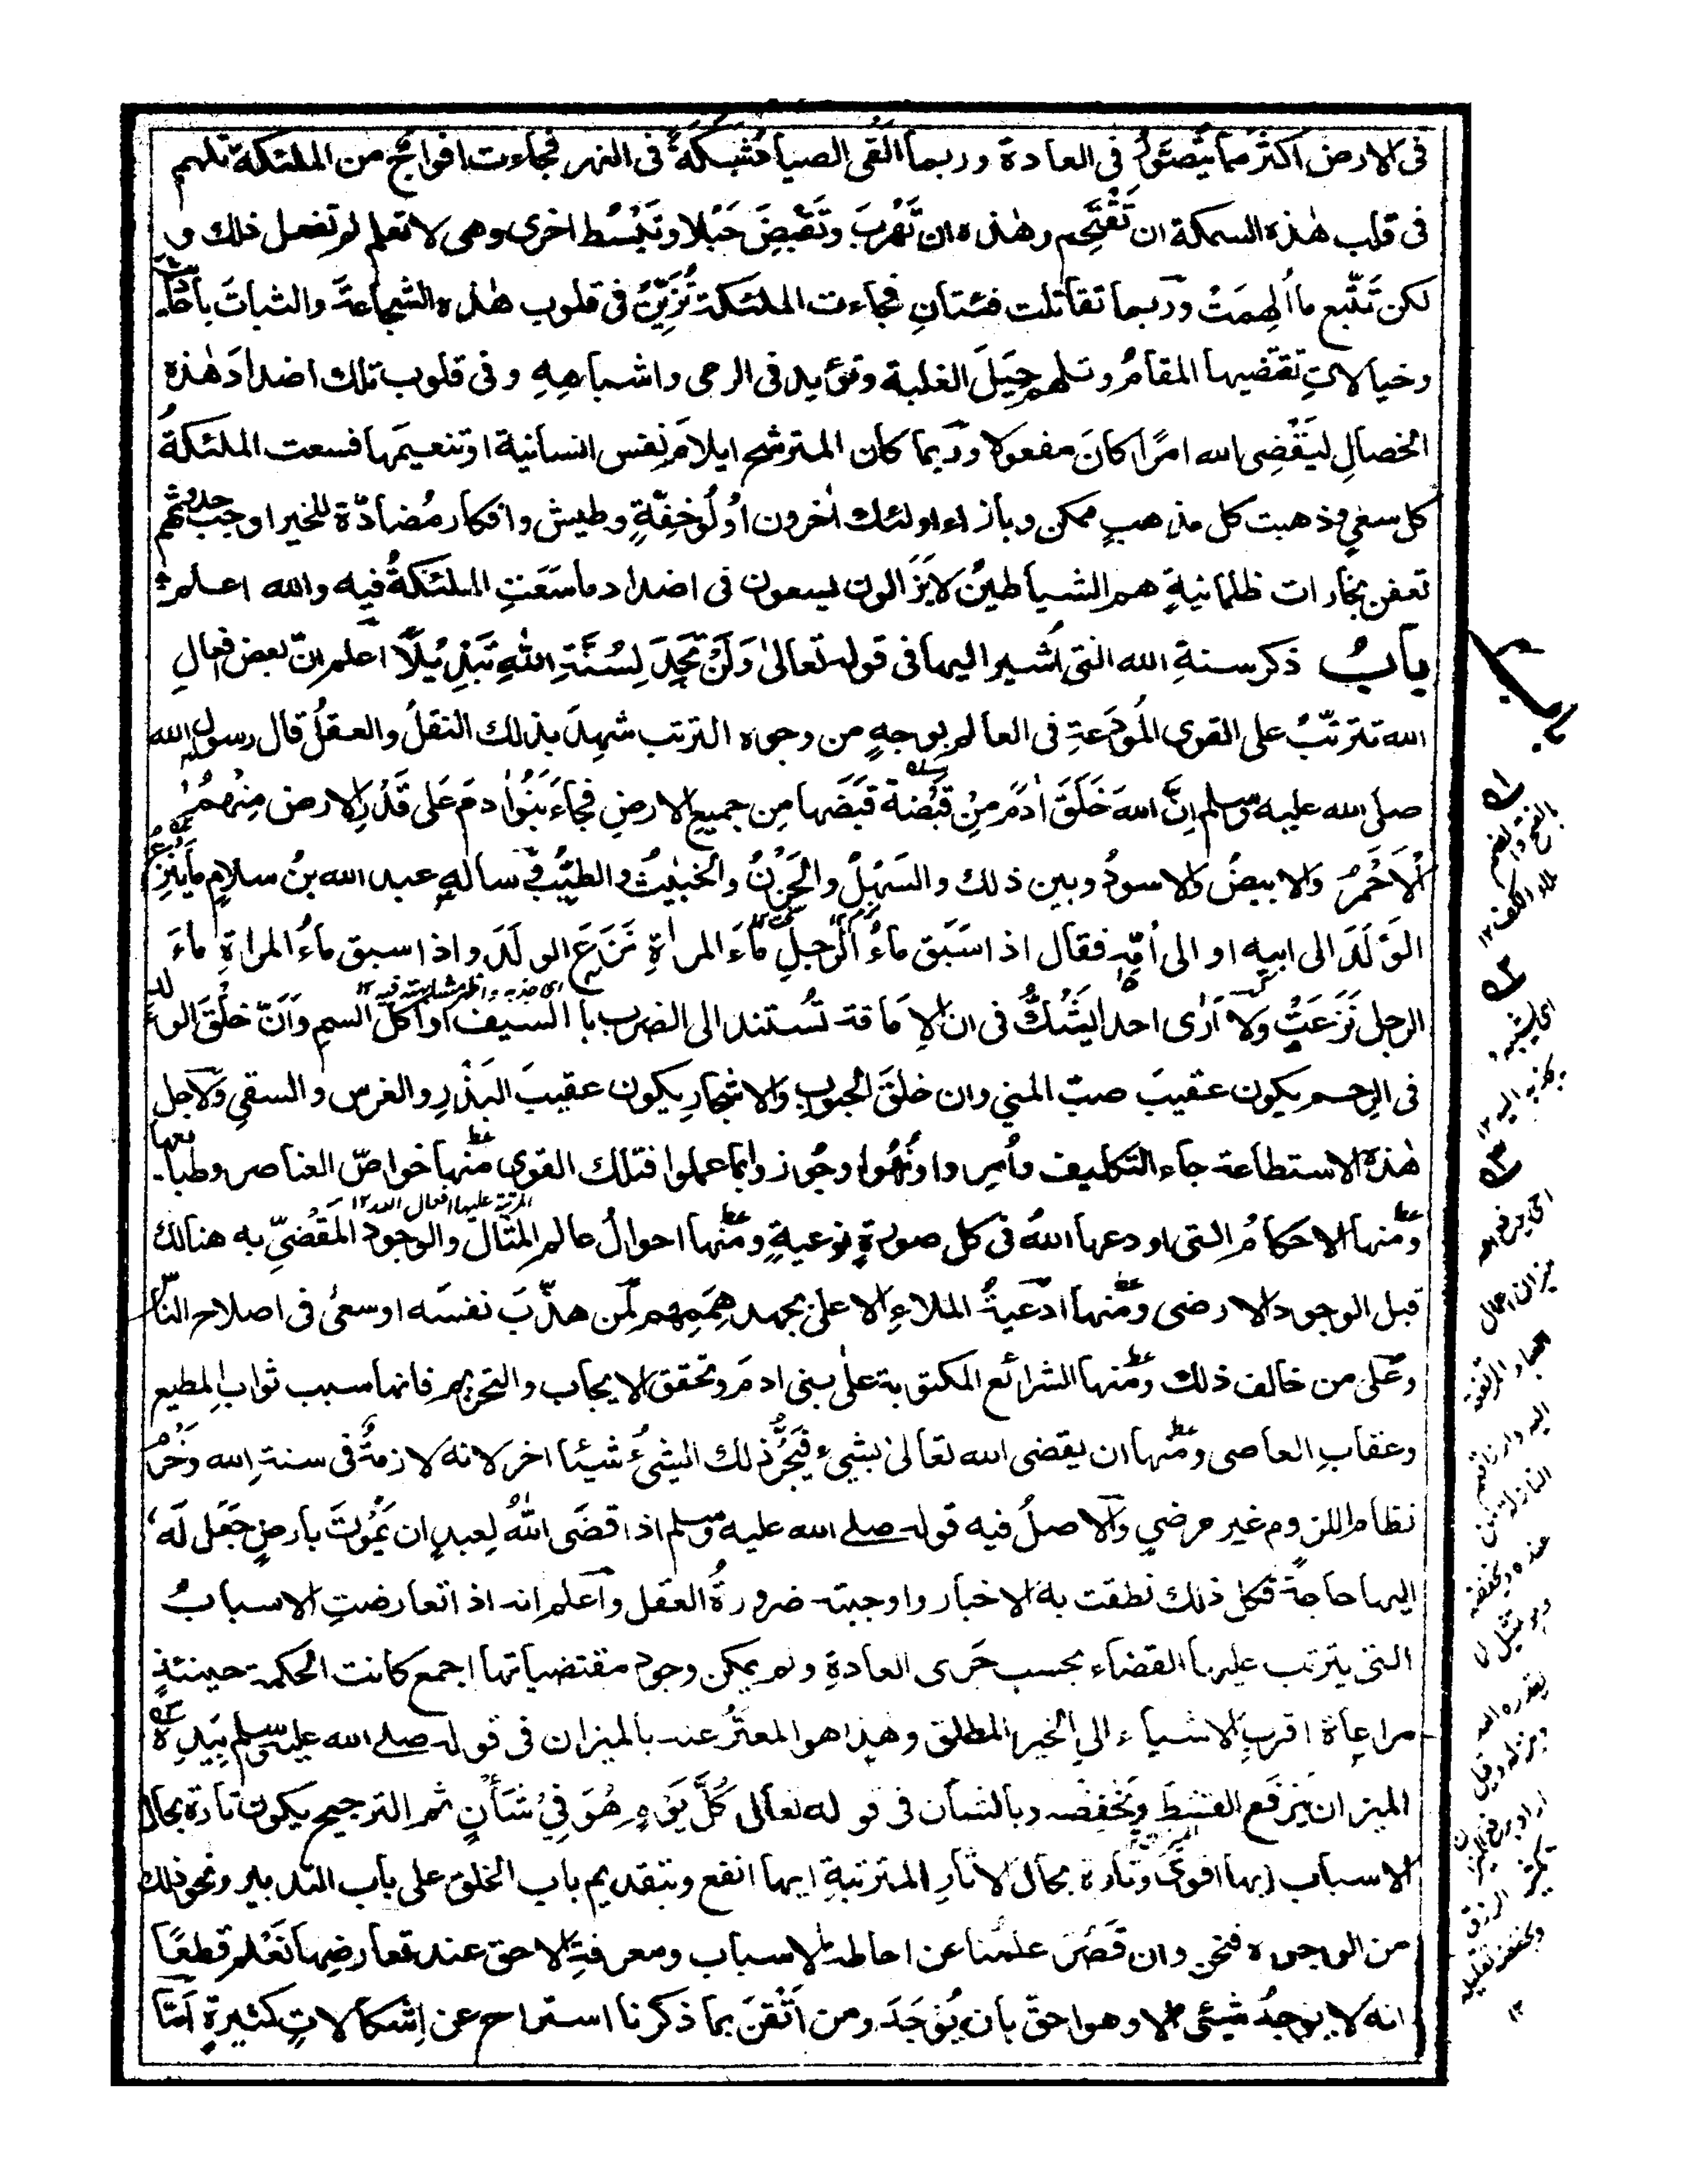 فى الارض اكثر مما يُتصوَّر فى العادة وربما القى الصياد شبكةً فى النهر فجاءت افواج من الملئكة تلهم
فى قلب هٰذه السمكة ان تَقْتَحِم وهٰذه ان تَهْرُبَ وتَقْبِضَ حَبْلا وتَبْسُط اخرى وهى لا تعلم لم تفعل ذلك و
لكن تَتَّبع ما اُلْهِمَتْ وربما تقاتلت فئتانِ فجاءت الملئكة تُزَيِّنُ فى قلوب هٰذه الشجاعةَ والثباتَ باحاديث
وخيالاتٍ تقتضيها المقامُ وتلهم حِيَلَ الغلبة وتؤيد فى الرمى واشباهِهِ وفى قلوب تلك اضدادَ هٰذه
الخصالِ لِيَقْضِى الله امرًا كانَ مفعولا وربما كان المترشح ايلامَ نفس انسانية او تنعيمَها فسعت الملئكةُ
كل سعيٍ وذهبت كل مذهبٍ ممكن وبازاء اولئك اٰخرون اُولُو خِفّةٍ وطيش وافكار مُضادّة للخير اوجب حدوثهم
تعفن بخارات ظلمانيةٍ هم الشياطينُ لا يَزَالون يسعون فى اضداد ما سَعَتِ الملئكةُ فيه والله اعلم
بابُ ذكر سنةِ الله التى اُشير اليها فى قوله تعالىٰ وَلَنْ تَجِدَ لِسُنَّةِ اللهِ تَبْدِيْلًا اعلم انّ بعض افعالِ
الله تترتّبُ على القوى المُودَعةِ فى العالم بوجهٍ من وجوه الترتب شهِدَ بذلك النقلُ والعقلُ قال رسول الله
صلى الله عليه وسلم اِنَّ اللهَ خَلَقَ اٰدَمَ مِنْ قَبْضة قَبَضَها مِن جميعِ الارضِ فجاءَ بَنُوْا اٰدمَ عَلى قَدْرِ الارض مِنْهُمُ
الْاَحْمَرُ وَالابيضُ وَالاسودُ وبين ذلك والسَهْلُ والحَزْنُ والخَبِيْثُ والطيّبُ وساله عبد الله بنُ سلامٍ ما يَنْزِعُ
الوَلَدَ الى ابيه او الى اُمّه فقال اذا سَبَق ماءُ الرَّجلِ مَاءَ المرأةِ نَزَعَ الولَدَ واذا سبق ماءُ المراةِ ماءَ
الرجل نَزَعَتْ وَلا اَرٰى احدا يَشُكُّ فى ان الاماتة تُستند الى الضرب بالسيف او اَكل السم وَاَنّ خلقَ الولد
فى الرحم يكون عقيبَ صبّ المني وان خلقَ الحبوبِ وَالاشجارِ يكون عقيبَ البَذْرِ والغرس والسقيِ وَلاجل
هٰذه الاستطاعة جاء التكليف واُمِروا ونُهُوا وجُوزوا بما عملوا فتلك القوى منها خواصّ العناصر وطبائعها
ومنها الاحكامُ التى اودعها اللهُ فى كل صورةٍ نوعيةٍ ومنها احوالُ عالم المثال والوجود المَقضيِّ به هنالك
قبل الوجود الارضى ومنها ادعيةُ الملاءِ الاعلى بجهد هِمَمِهم لمن هذّبَ نفسَه او سعىٰ فى اصلاح الناس
وعلى من خالف ذلك ومنها الشرائع المكتوبة علىٰ بنى ادمَ وتحقق الايجاب والتحريم فانها سبب ثوابِ المطيع
وعقابِ العاصى ومنها ان يقضى الله تعالىٰ بشيء فَيَجُرُّ ذلك الشيءُ شيئا اخر لانه لازمهٌ فى سنة الله وخَرْمُ
نظام اللزوم غير مرضي وَالاصلُ فيه قوله صلى الله عليه وسلم اذا قضَى اللهُ لِعبدٍ ان يَمُوْتَ بارضٍ جَعَل لَه
اليها حاجةً فكل ذلك نطقت به الاخبار واوجبته ضرورةُ العقل واعلم انه اذا تعارضتِ الاسبابُ
التى يترتب عليها القضاء بحسب جَرى العادةِ ولم يمكن وجود مقتضياتها اجمع كانت الحكمة حينئذٍ
مراعاةَ اقربِ الاشياء الى الخير المطلق وهذا هو المعبَّرُ عنه بالميزان فى قوله صلى الله عليه وسلم بِيَدِه
الميزان يَرفع القسطَ ويَخْفِضه وبالشان فى قوله تعالى كُلَّ يَوْمٍ هُوَ فِيْ شَأْنٍ ثم الترجيح يكون تارة بحال
الاسباب ايها اقوىٰ وتارة بحال الاثارِ المترتبةِ ايها انفع وبتقديم باب الخلق على باب التدبير ونحو ذلك
من الوجوه فنحن وان قَصُرَ علمُنا عن احاطة الاسباب ومعرفةِ الاحق عند تعارضِها نَعْلم قطعًا
انه لا يوجدُ شيئى الا وهو احق بان يُوْجَدَ ومن اَتْقنَ بما ذكرنا استراح عن اِشكالاتٍ كثيرةٍ اَمّا
باب
بالفتح والضم
ملء الكف ١٢
اى يشبه
ويجذبه اليه ١٢
اى يرفع
ميزان اعمال
العباد المرتفعة
اليه وارزاقهم
النازلة من
عنده ويخفضه
وهو تمثيل
يقدره الله
وينزله وقيل
اراد برفع
الرزق
ويخفضه تقليله
١٢